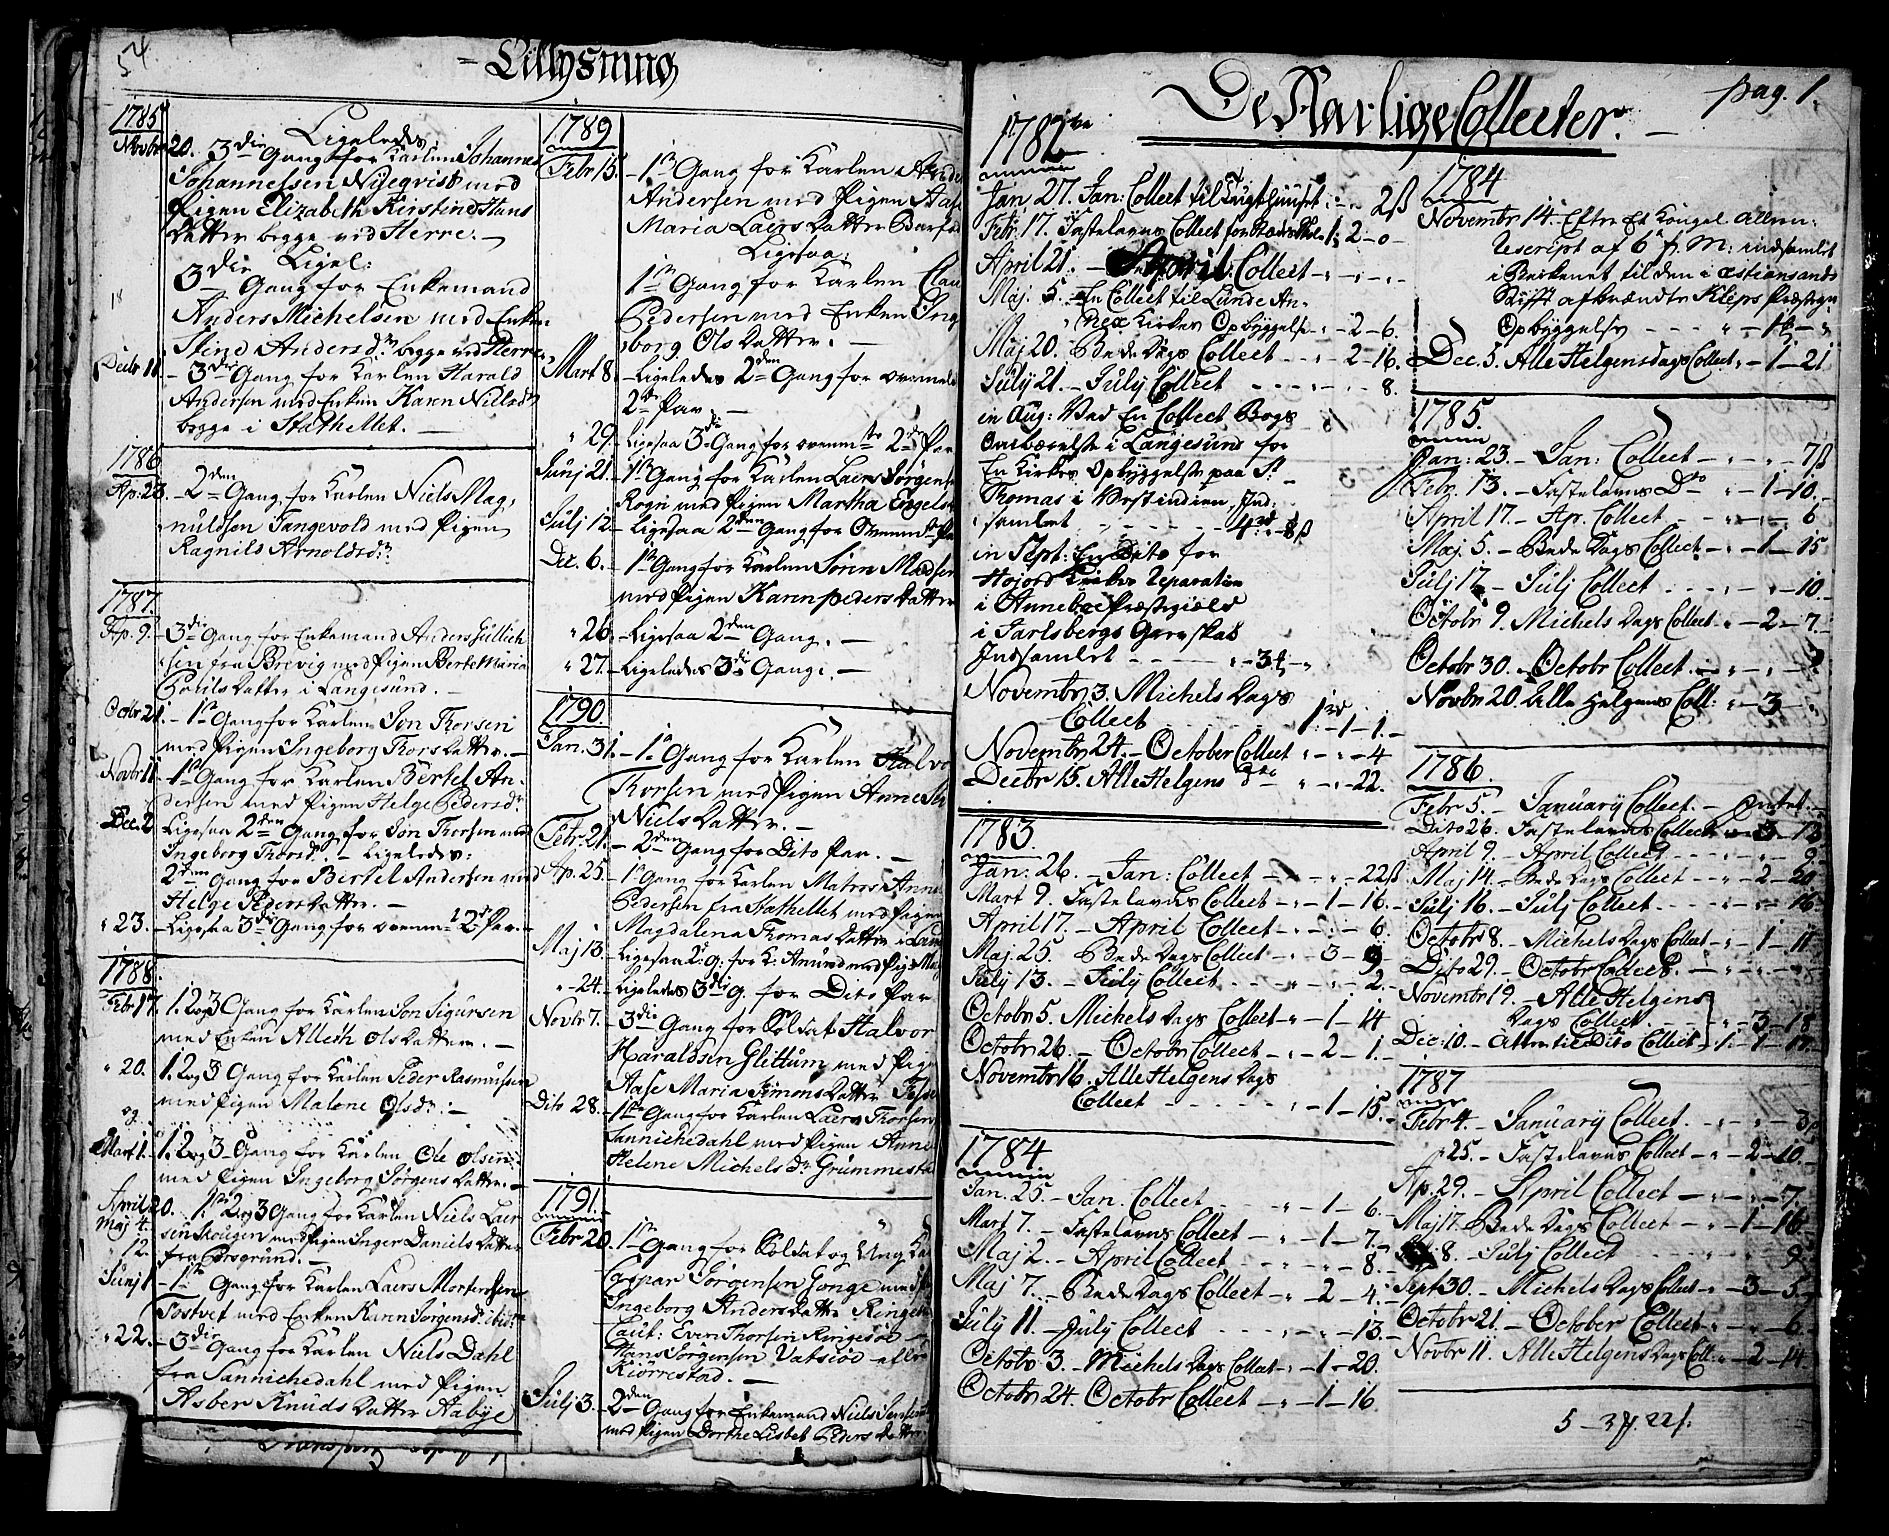 54.
Lillysning
1785
Novbr 20. Ligeledes
3die Gang for Karlen Johannes
Johannelsen Nileqvist med
Pigen Elizabeth Kirstine Hans
Datter begge ved Herre.
3die Ligel:
3die Gang for Enkemand
Anders Michelsen med Enken
Stine Andersdr begge ved Herre
Decbr 11. 3die Gang for Karlen Harald
Andersen med Enken Karen Nielsdr
begge i Stathellet.
1786
Ap. 23. 2den Gang for Karlen Niels Mag-
nuldsen Tangevold med Pigen
Ragnils Arnoldsdr
1787.
Ap. 9. 3die Gang for Enkemand Anders Gullich
sen fra Brevig med Pigen Berte Maria
Povils Datter i Langesund.
Octbr 21. 1te Gang for Karlen Jon Thorsen
med Pigen Ingeborg Thors Datter.
Novbr 11. 1te Gang for Karlen Bertel An-
dersen med Pigen Helge Pedersdr
Dec. 2 Ligesaa 2den Gang for Jon Thorsen med
Ingeborg Thorsdr. Ligeledes:
2den Gang for Bertel Andersen med
Helge Peders Datter.
" 23. Ligesaa 3die Gang for ovenm: 2de Par.
1788
Febr 17. 1. 2 og 3 Gang for Karlen Jon Sigursen
med Enken Alleth Ols Datter.
" 20. 1. 2 og 3 Gang for Karlen Peder Rasmussen
og med Pigen Malene Olsdr:
Mart 1. 1. 2 og 3 Gang for Karlen Ole Olsen
med Pigen Ingeborg Jørgens Datter.
April 20. 1te 2 og 3 Gang for Karlen Niels Laer
Maj 4. sen Skougen med Pigen Inger Daniels Datter
" 12. fra Porsgrund.
Junj 1. 1te Gang for Karlen Laers Mortensen
Tostvet med Enken Karen Jørgensdr ibid:
" 22. 3die Gang for Karlen Niels Dahl
fra Sannichedahl med Pigen
Asber Knuds Datter Aabÿe
1789
Febr 15. 1te Gang for Karlen Ande
Andersen med Pigen Aase
Maria Laers Datter Barfod
Ligesaa:
1te Gang for Karlen Clau
Pedersen med Enken Inge
borg Ols Datter.
Mart 8. Ligeledes 2den Gang for ovenmelte
2de Par.
" 29. Ligesaa 3die Gang for ovenmte 2de Par
Junj 21. 1te Gang for Karlen Laers Jørgens
Rogn med Pigen Martha Engels
Julj 12 Ligesaa 2den Gang for Ovenmte Par
Dec. 6. 1te Gang for Karlen Søren Madsen
med Pigen Karen Peders Datter
" 26. Ligesaa 2den Gang.
" 27. Ligeledes 3die Gang.
1790
Jan. 31. 1te Gang for Karlen Halvo
Thorsen med Pigen Anne
Niels Datter.
Febr. 21. 2den Gang for Dito Par.
Ap. 25. 1te Gang for Karlen Matros
Pedersen fra Stathellet med Pigen
Magdalena Thomas Datter i Lan
Maj 13. Ligesaa 2: g: for K: Amund med Pig: Mag
" 24. Ligeledes 3die g. for Dito Par
Novbr 7. 3die Gang for Soldat Halvor
Haraldsen Glittum med Pige
Aase Maria Simons Datter
Dito 28. 1te Gang for Karlen Laers Thorsen
Sannichedahl med Pigen Anne
Helene Michelsdr Grummestad
1791.
Febr 20. 1te Gang for Soldat og Ung Ka
Caspar Jørgensen Gonge med
Ingeborg Anders Datter Ringe
Caut: Even Thorsen Ringesøe
Hans Jørgensen Vatsiød
Kiørrestad.
Julj 3. 2den Gang for Enkemand Niels Jens
med Pigen Dorthe Lisbet Peders Datter
pag. 1.
De Aarlige Collecter.
1782
Jan 27. Jan: Collect til Tugthuuset 2ß
Febr. 17. Fastelavns Collect 1: 2 - 0
April 21. April Collect
Maj. 5. En Collect til Lunde An-
nex Kirkes Opbyggelse 2 - 6.
Maj 20. Bede Dags Collect 2 - 16.
July 21. July Collect 8.
in Aug: Ved En Collect Bogs
Ombærelse i Langesund for
En Kirkes Opbyggelse paa St
Thomas i Vestindien, Ind-
samlet 4rd: - 8ß
in Sept: En Dito for
Hojord Kirkes Reparation
i Anneboe Præstegiæld
i Jarlsbergs Grevskab
Indsamlet - 3 -
Novembr 3. Michels Dags
Collect 1 - 1 - 1.
Novembr 24. October Collect 4
Decbr 15. Alle Helgens Dito 22.
1783.
Jan: 26. Jan: Collect 22ß
Mart 9. Fastelavns Collect 1 - 16.
April 17. April Collect 6.
Maj 25. Bede Dags Collect 3 - 9.
July 13. July Collect 2.
Octobr 5. Michels Dags Collect 1 - 14
Octobr 26. Octobr Collect 2 - 1.
Novembr 16. Alle Helgens Dags
Collect 1 - 15.
1784
Jan. 25. Jan. Collect 1 - 6.
Mart 7. Fastelavns Collect 1 - 7.
Maj 2. April Collect 8.
Maj 7. Bede Dags Collect 2 - 4.
July 11. July Collect 13.
Octobr 3. Michels Dags Collect 1 - 20.
Octobr 24. Octobr Collect 1 - 16
1784
Novembr 14. Efter Et Kongel Allern:
Rescript af 6te f. M: indsamlet
i Kirkerne til den i Christiansands
Stift afbrændte Kleps Præstegr
Opbyggelse
Dec. 5. Alle Helgens Dags Collect 1 - 21
1785.
Jan: 23. Jan: Collect 7ß
Febr. 13. Fastelavns Do 1 - 10.
April 17. Ap. Collect 6
Maj. 5. Bede Dags Collect 1 - 15
Julj 17. Julj Collect 10.
Octobr 9. Michels Dags Collect 2 - 7.
Octobr 30. Octobr Collect
Novbr 20. Alle Helgens Coll: 3 -
1786.
Febr 5. January Collect. Intet.
Dito 26. Fastelavns Collect 3 - 12
April 9. April Collect 9.
Maj 14. Bede Dags Collect 2 - 20
Julj 16. Julj Collect 16
Octobr 8. Michels Dags Collect 1 - 11
Dito 29. Octobr Collect
Novembr 19. Alle Helgens
Dags Collect 3 - 18
Dec: 10. Atter til Dito Collect 1: 1 - 17
1787
Febr 4. January Collect. 3ß
" 25. Fastelavns Collect 2 - 10.
Ap. 29. April Collect 7.
Maj 17. Bede Dags Collect 1 - 16
8. Julj Collect 9
Sept 30. Michels Dags Collect 3 - 5.
Octobr 21. October Collect 6
Novbr 11. Alle Helgens Dags Coll: 2 - 14
5 - 3 22ß.